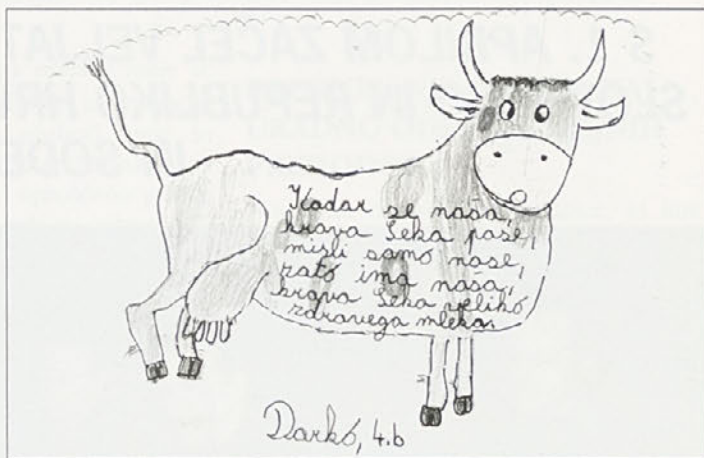 Kadar se naša,
krava Šeka pase,
misli samó nase,
zató ima naša,
krava Šeka veliko
zdravega mleka.
Darkó, 4.b